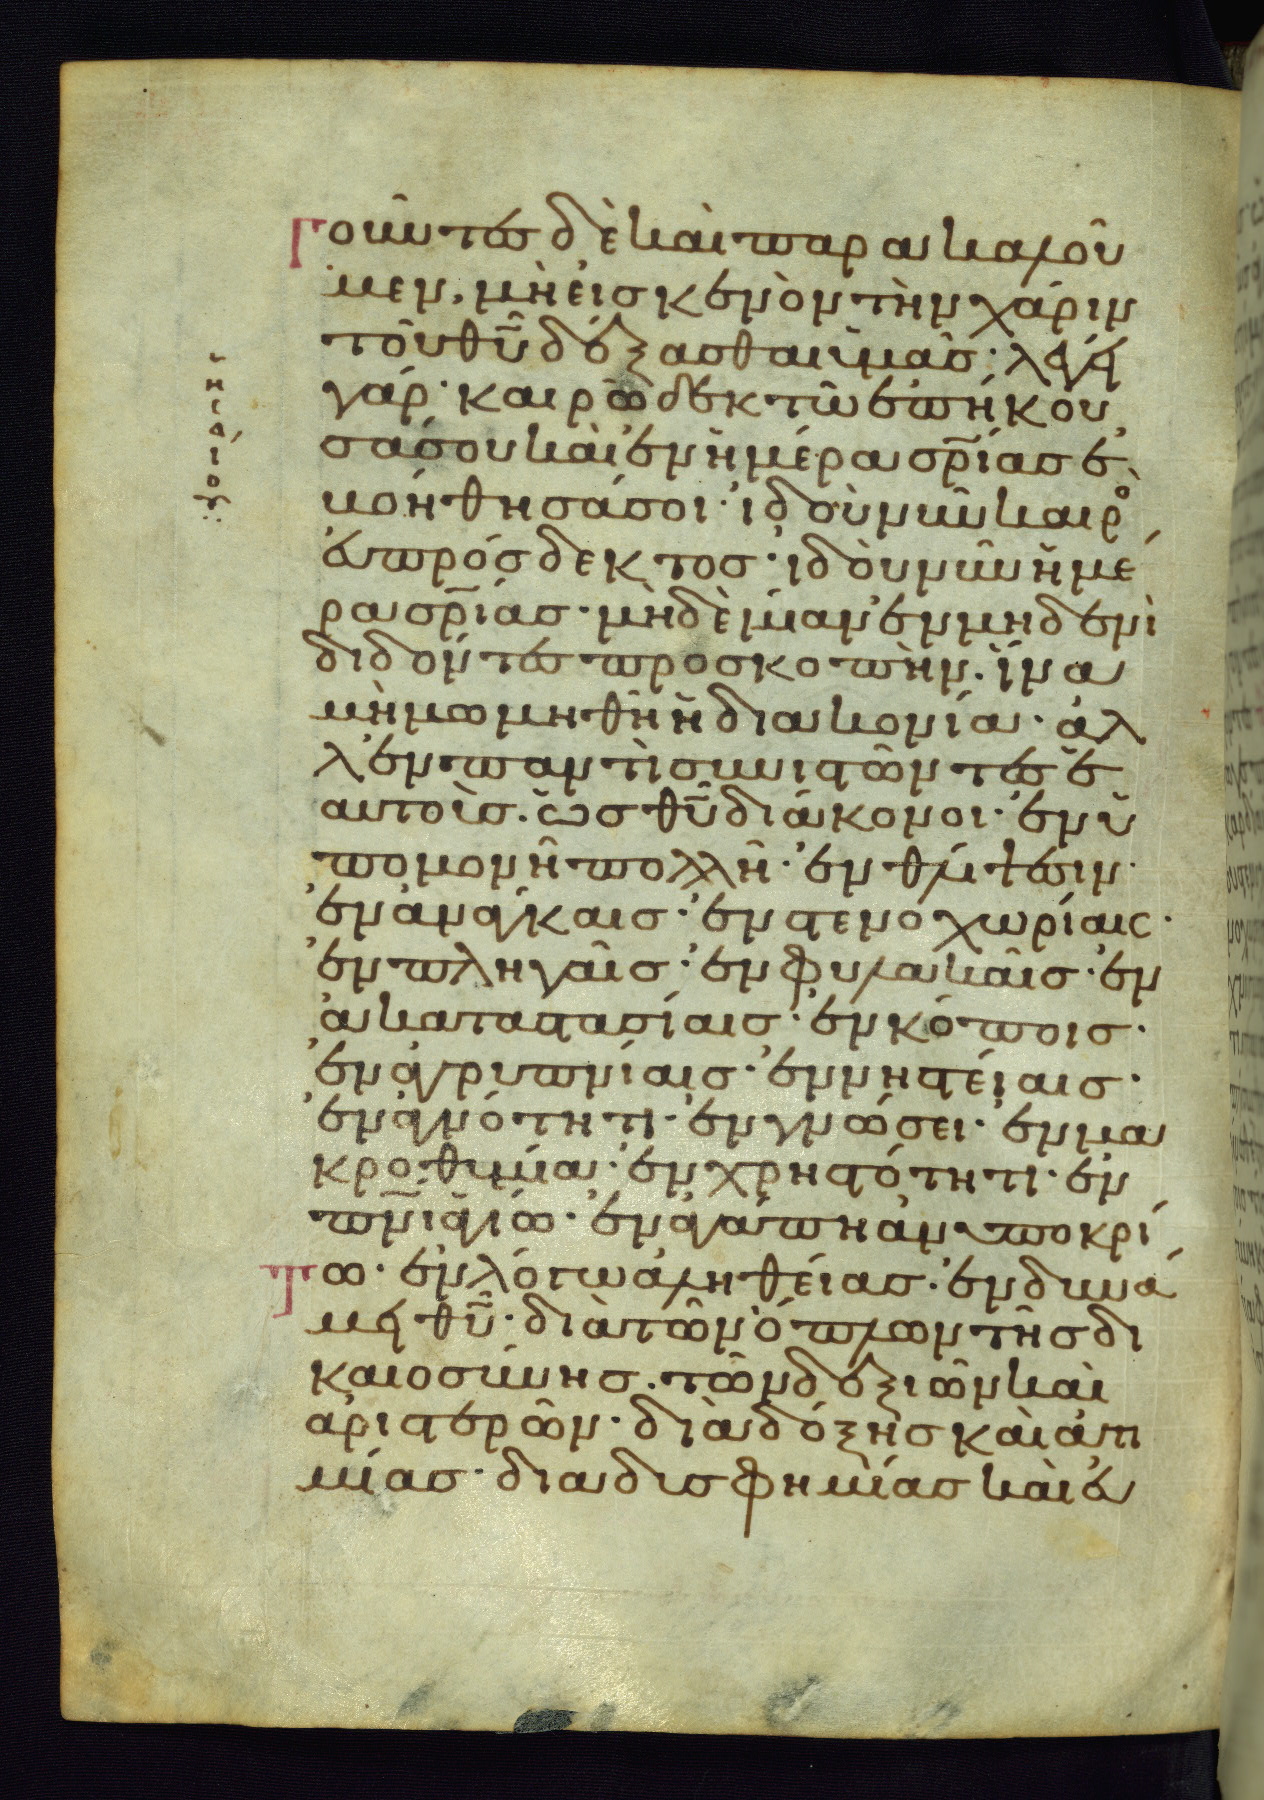 Γοῦντες δὲ καὶ παρακαλοῦ
μεν, μὴ εἰς κενὸν τὴν χάριν
τοῦ θῦ δέξασθαι ὑμᾶς· λέγει
γάρ· καιρῶ δεκτῶ ἐπήκου
σά σου καὶ ἐν ἡμέρα σρίας ἐ
βοήθησά σοι· ἰδοὺ νῦν καιρο
εὐπρόσδεκτος· ἰδοὺ νῦν ἡμέ
ρα σρίας· μὴδὲμίαν ἐν μηδενὶ
διδόντες προσκοπὴν. ἵνα
μὴ μωμηθῆ ἡ διακονία· ἀλ
λ' ἐν παντὶ συνιστῶντες ἑ
αυτοὺς. ὡς θῦ διάκονοι· ἐν ὑ
πομονῆ πολλῆ· ἐν θλίψεσιν·
ἐν ἀνάγκαις· ἐν στενοχωρίαις·
ἐν πληγαῖς· ἐν φυλακαῖς· ἐν
ἀκαταστασίαις· ἐν κόποις·
ἐν ἀγρυπνίαις· ἐν νηστείαις·
ἐν ἁγνότητι· ἐν γνώσει· ἐν μα
κροθυμία· ἐν χρηστότητι· ἐν
πνι ἁγίω· ἐν ἀγάπη ἀνυποκρί
Τω· ἐν λόγω ἀληθείας· ἐν δυνά
μει θῦ· διὰ τῶν ὅπλων τῆς δι
καιοσύνης. τῶν δεξιῶν καὶ
ἀριστερῶν· διὰ δόξης καὶ ἀτι
μίας· διὰ δυσφημίας καὶ εὐ
ησαιου